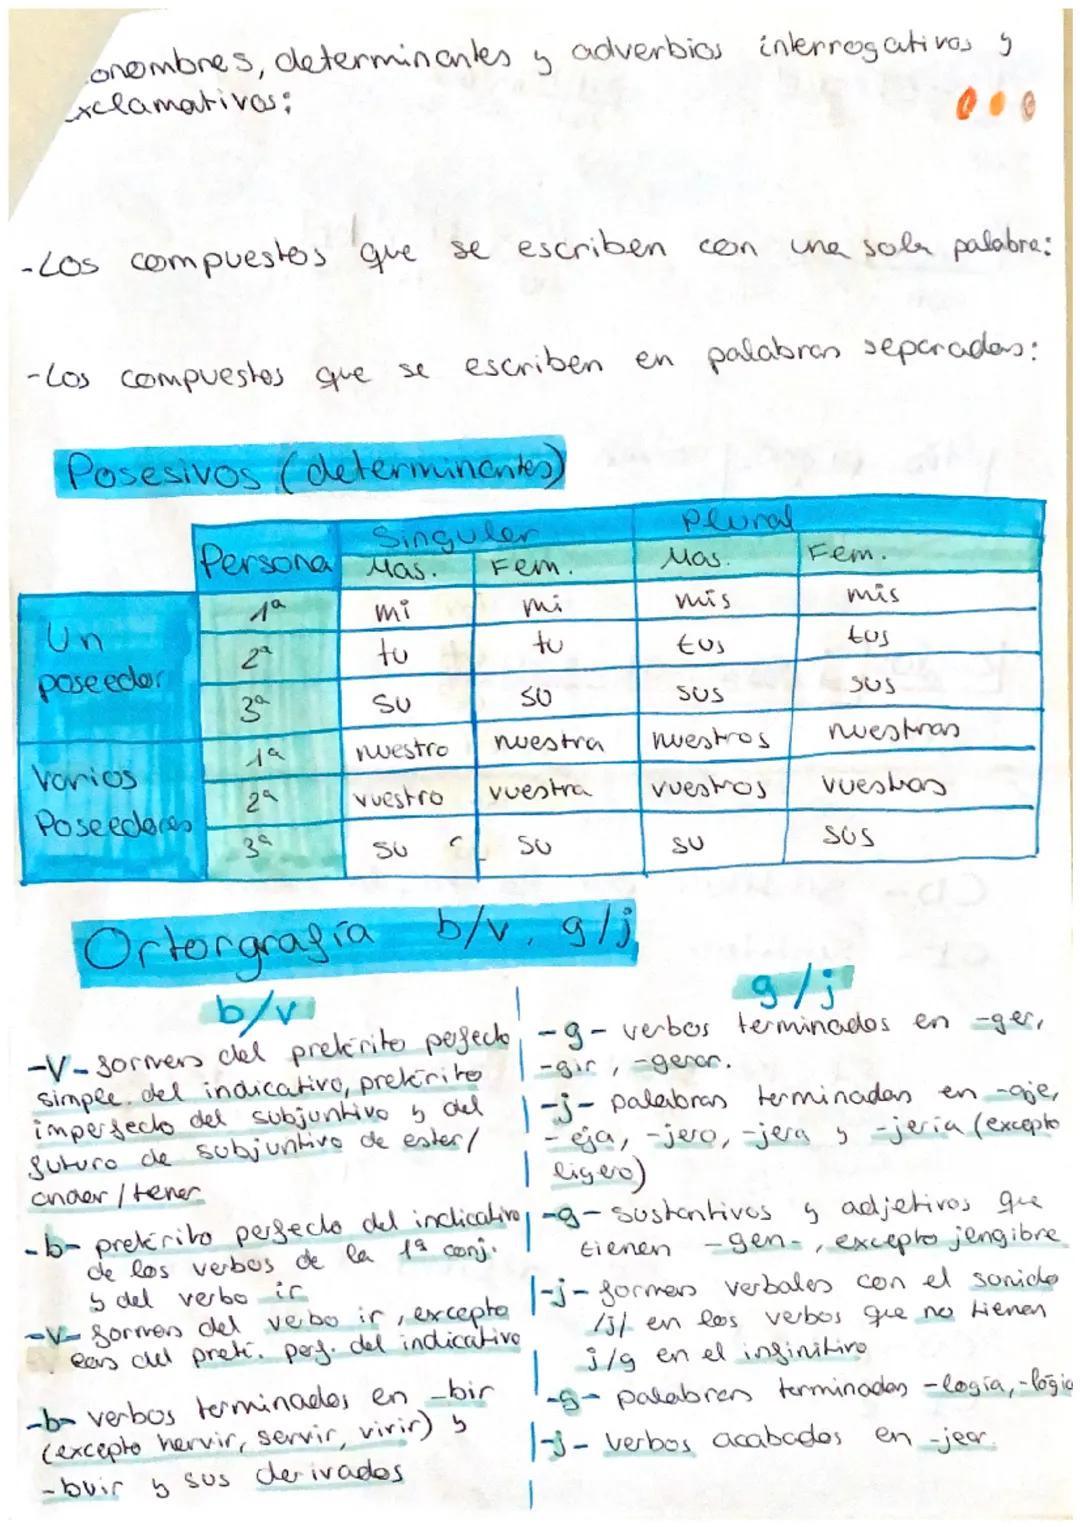 onombres, determinantes y adverbios interrogativos y
xclamativos:
-Los compuestos que se escriben con una sola palabra:
-Los compuestos que se escriben en palabras separadas:
Posesivos (determinantes)
Singular Plural
Persona Mas. Fem. Mas. Fem.
Un poseedor
1ª mi mi mis mis
2ª tu tu tus tus
3ª su su sus sus
Varios Poseedores
1ª nuestro nuestra nuestros nuestras
2ª vuestro vuestra vuestros vuestras
3ª su su su sus
Ortorgrafía b/v, g/j
b/v
-V- formas del pretérito perfecto
simple del indicativo, pretérito
imperfecto del subjuntivo y del
futuro de subjuntivo de estar/
andar/tener
-b- pretérito perfecto del indicativo
de los verbos de la 1ª conj.
y del verbo ir
-V- formas del verbo ir, excepto
las del preté. perf. del indicativo
-b- verbos terminados en -bir
(excepto hervir, servir, vivir) y
-buir y sus derivados
g/j
-g- verbos terminados en -ger,
-gir, -gerar.
-j- palabras terminadas en -aje,
-eja, -jero, -jera y -jería (excepto
ligero)
-g- sustantivos y adjetivos que
tienen -gen-, excepto jengibre
-j- formas verbales con el sonido
/j/ en los verbos que no tienen
j/g en el infinitivo
-g- palabras terminadas -logía, -lógic
-j- verbos acabados en -jear.